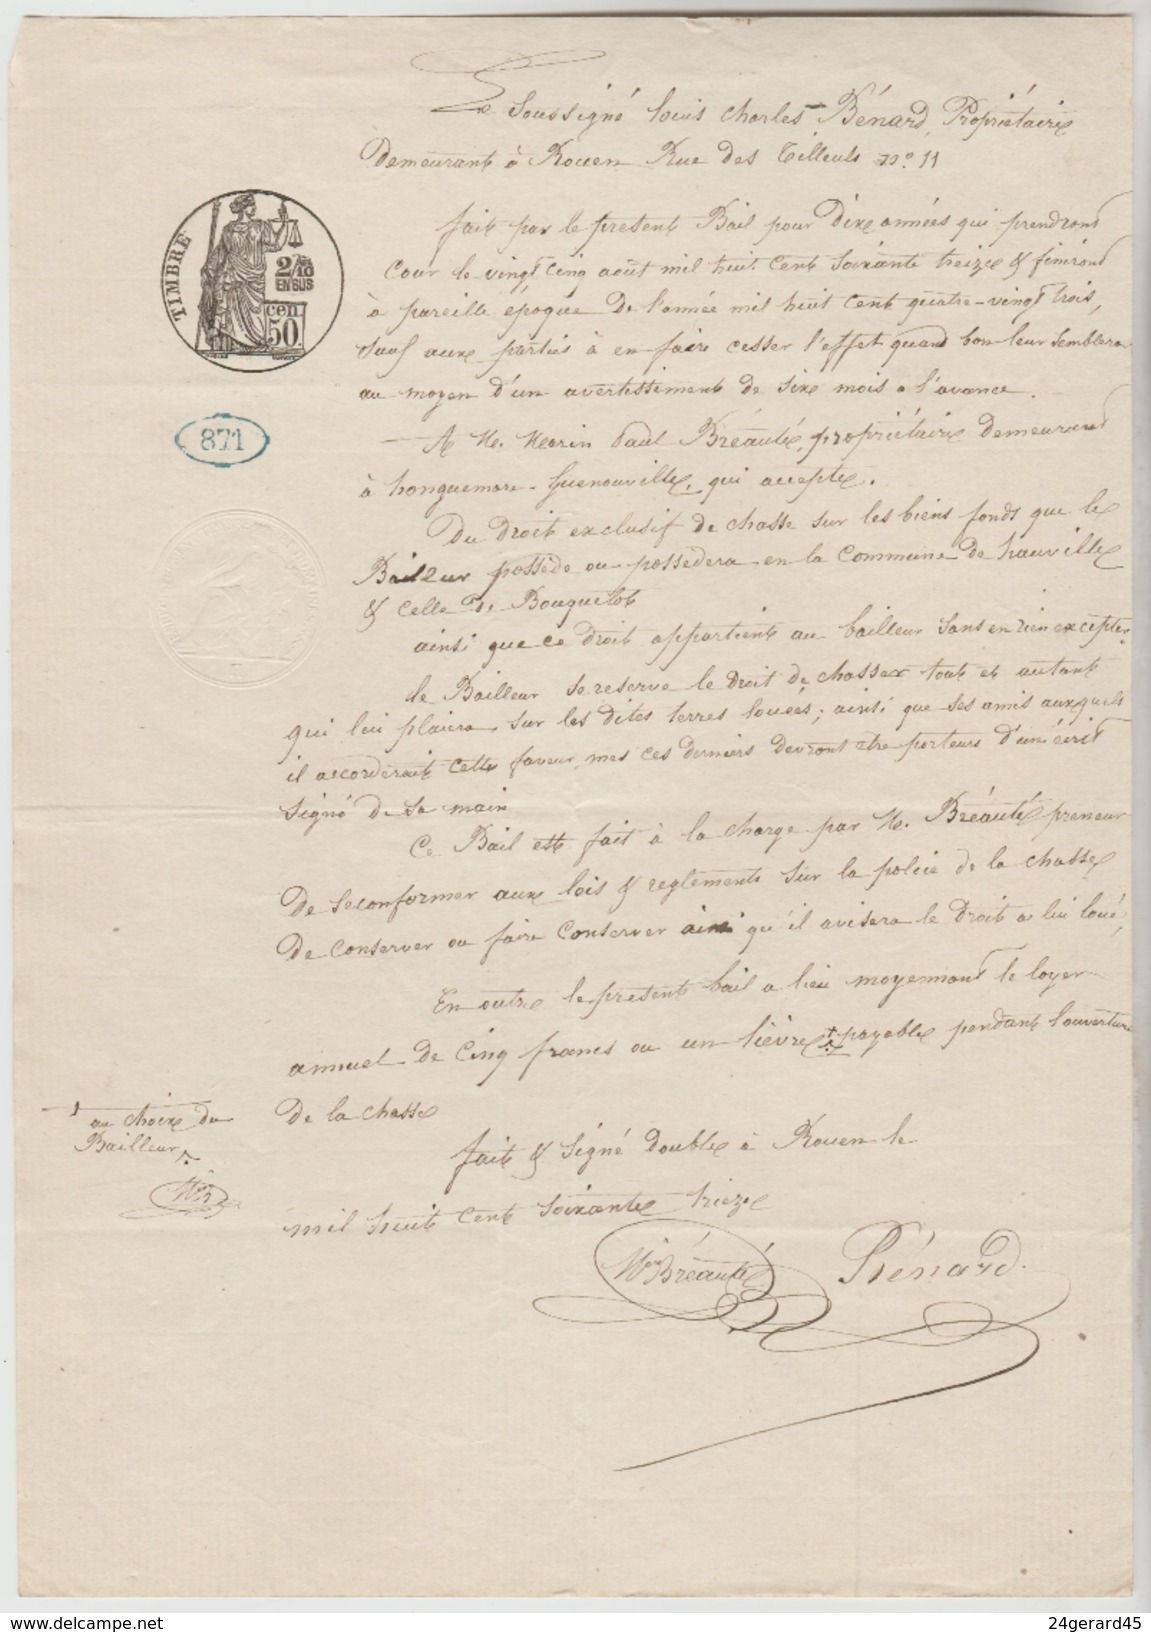 Le Soussigné louis charles Bénard, Propriétaire
Demeurant à Rouen Rue des Tilleuls no. 11
fait par le présent Bail pour Dixe années qui prendront
cour le vingt cinq août mil huit cent soixante treize & finiront
à pareille époque de l'année mil huit cent quatre-vingt trois,
sauf aux parties à en faire cesser l'effet quand bon leur semblera
au moyen d'un avertissement de sixe mois a l'avance.
TIMBRE
2/10
EN SUS
50 cen
871
— A M. Marin Paul Bréauté, propriétaire demeurand
à honguemare-Guenouville, qui accepte.
Du Droit exclusif de chasse sur les biens fonds que le
Bailleur possède ou possedera en la Commune de hauville
& celle de Bouquelot
ainsi que ce Droit appartient au bailleur sans en rien excepter
le Bailleur se reserve le Droit de chasser tout et autant
qui lui plaiera sur les dites terres louées; ainsi que ses amis auxquels
il accorderait cette faveur, mes ces derniers devront etre porteurs d'un écrit
signé de sa main
Ce Bail est fait à la charge par M. Bréauté preneur
De se conformer aux lois & reglements sur la police de la chasse
De conserver ou faire conserver ainsi qu'il avisera le Droit a lui loué,
En outre le present bail a lieu moyennant le loyer
annuel de cinq francs ou un lièvre + payable pendant l'ouverture
De la chasse
+ au choixe du
Bailleur
fait & signé double à Rouen le
mil huit cent soixante treize
Mn Bréauté Bénard
24gerard45